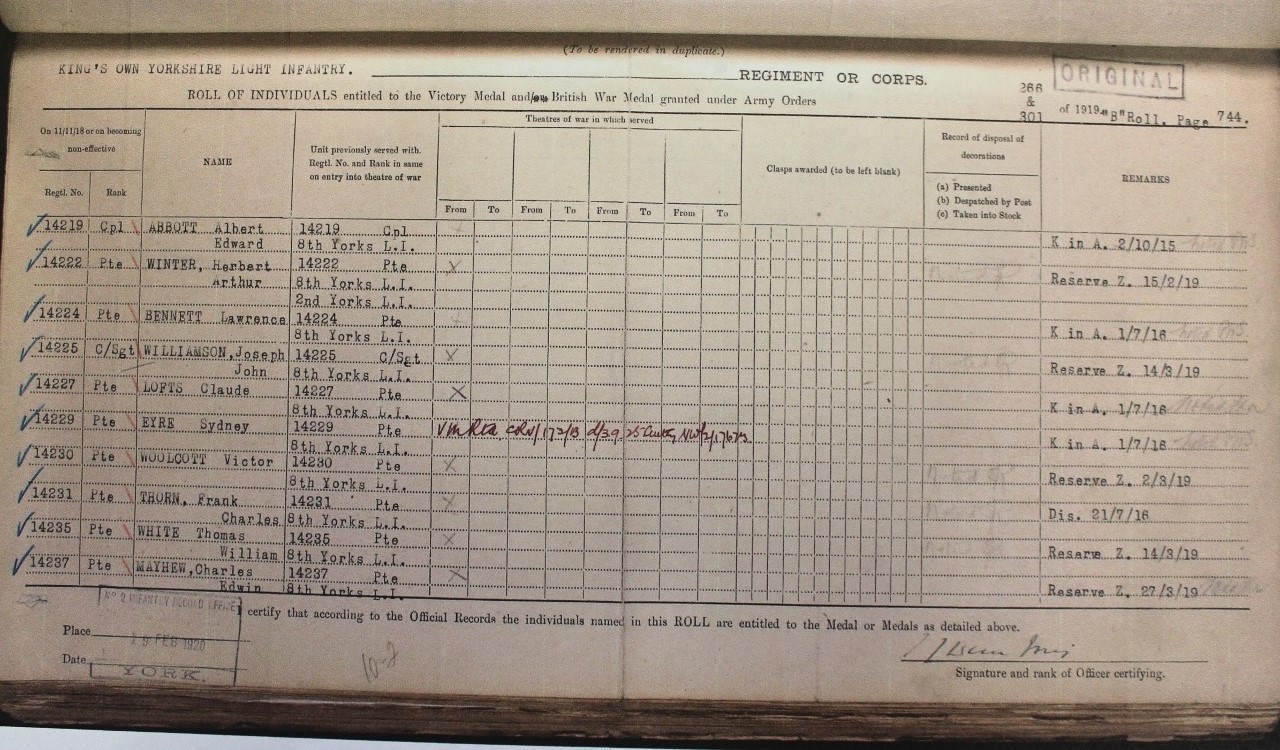 (To be rendered in duplicate.)
KING'S OWN YORKSHIRE LIGHT INFANTRY. REGIMENT OR CORPS.
ORIGINAL
ROLL OF INDIVIDUALS entitled to the Victory Medal and/or British War Medal granted under Army Orders 266 & 301 of 1919. "B" Roll. Page 744.
On 11/11/18 or on becoming non-effective
NAME
Unit previously served with. Regtl. No. and Rank in same on entry into theatre of war
Theatres of war in which served
Clasps awarded (to be left blank)
Record of disposal of decorations
(a) Presented
(b) Despatched by Post
(c) Taken into Stock
REMARKS
Regtl. No. Rank From To From To From To From To
14219 Cpl ABBOTT Albert 14219 Cpl
Edward 8th Yorks L.I. K in A. 2/10/15
14222 Pte WINTER, Herbert 14222 Pte X
Arthur 8th Yorks L.I. Reserve Z. 15/2/19
2nd Yorks L.I.
14224 Pte BENNETT Lawrence 14224 Pte
8th Yorks L.I. K in A. 1/7/16
14225 C/Sgt WILLIAMSON, Joseph 14225 C/Sgt X
John 8th Yorks L.I. Reserve Z. 14/3/19
14227 Pte LOFTS Claude 14227 Pte X
8th Yorks L.I. K in A. 1/7/16
14229 Pte EYRE Sydney 14229 Pte
8th Yorks L.I. K in A. 1/7/16
14230 Pte WOOLCOTT Victor 14230 Pte X
8th Yorks L.I. Reserve Z. 2/3/19
14231 Pte THORN, Frank 14231 Pte X
Charles 8th Yorks L.I. Dis. 21/7/16
14235 Pte WHITE Thomas 14235 Pte X
William 8th Yorks L.I. Reserve Z. 14/3/19
14237 Pte MAYHEW, Charles 14237 Pte X
Edwin 8th Yorks L.I. Reserve Z. 27/3/19
certify that according to the Official Records the individuals named in this ROLL are entitled to the Medal or Medals as detailed above.
No 2 INFANTRY RECORD OFFICE
Place
FEB 1920
Date
YORK.
10-2
Signature and rank of Officer certifying.